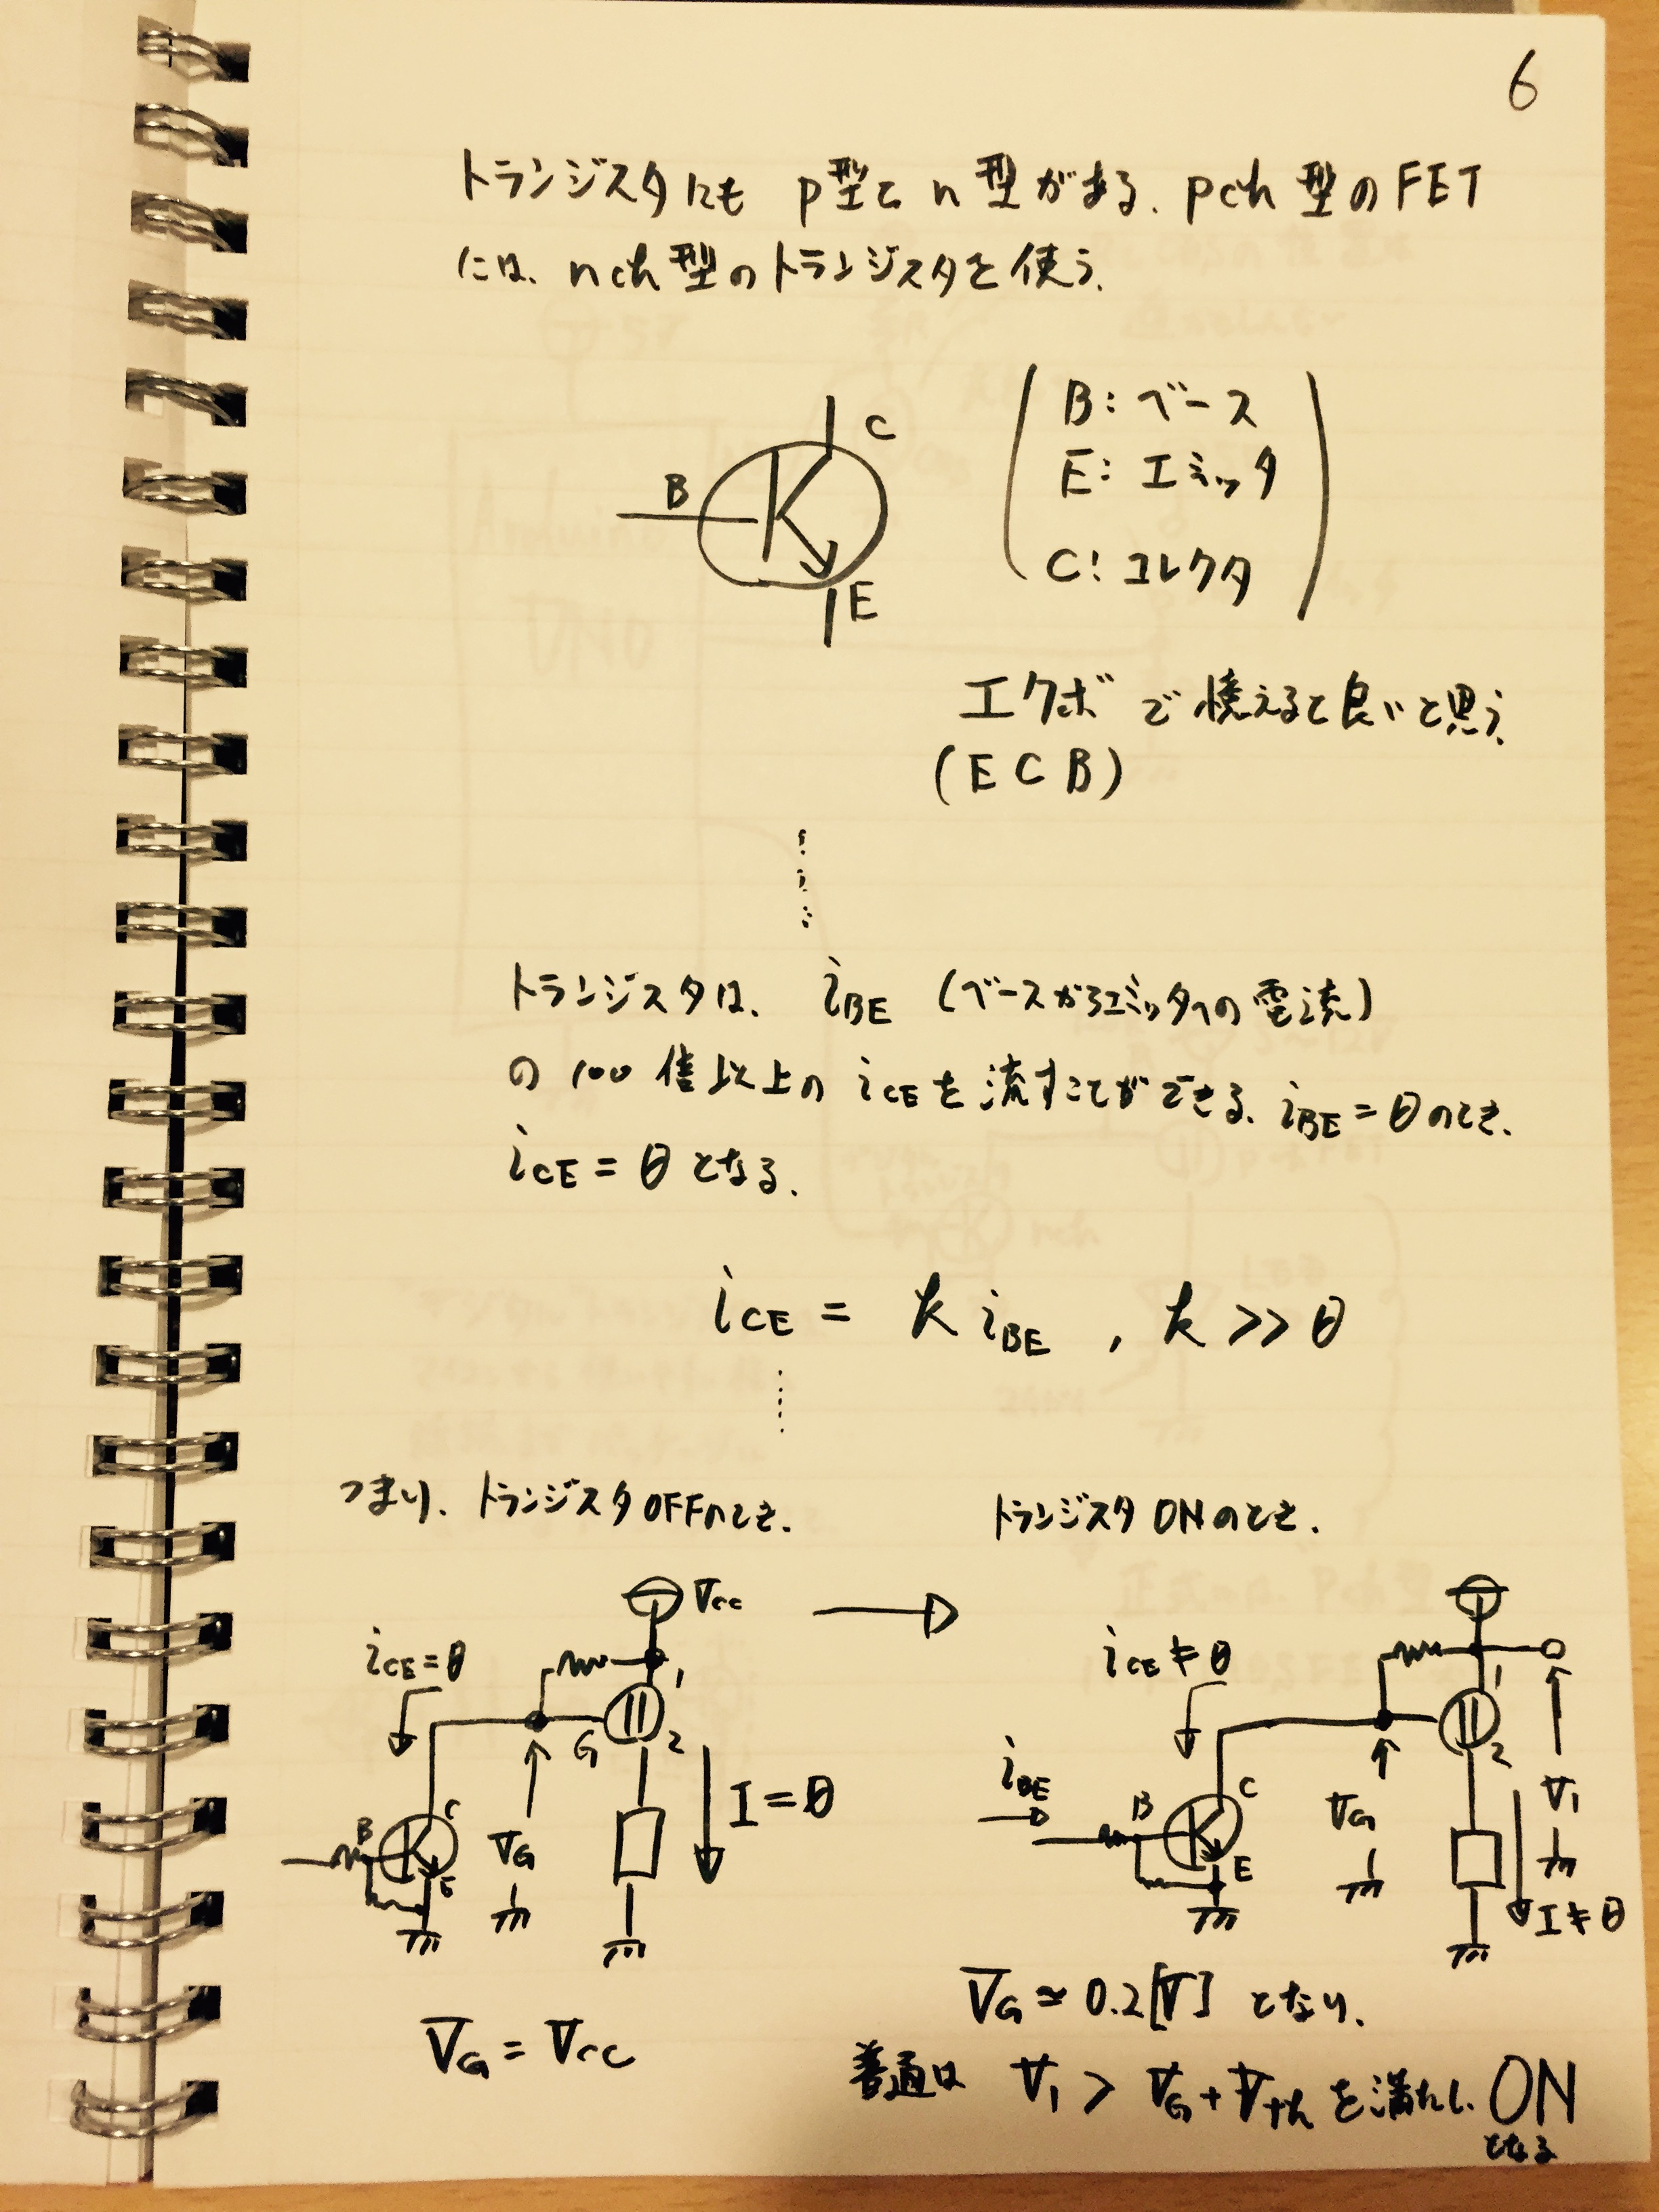 6
トランジスタにも p型と n型がある. pch 型の FET
には、nch型のトランジスタを使う.
C
B
E
B: ベース
E: エミッタ
C: コレクタ
エクボ で憶えると良いと思う.
(ECB)
トランジスタは、 iBE (ベースからエミッタへの電流)
の 100 倍以上の iCE を流すことができる. iBE = 0のとき.
iCE = 0 となる.
iCE = k iBE , k >> 0
つまり、トランジスタOFFのとき.
トランジスタ ONのとき.
Vcc
iCE = 0
1
G
2
I = 0
B
C
E
VG
VG = Vcc
iCE ≠ 0
1
2
iBE
B
C
E
VG
V1
I ≠ 0
VG ≃ 0.2[V] となり.
普通は V1 > VG + Vth を満たし. ON
となる